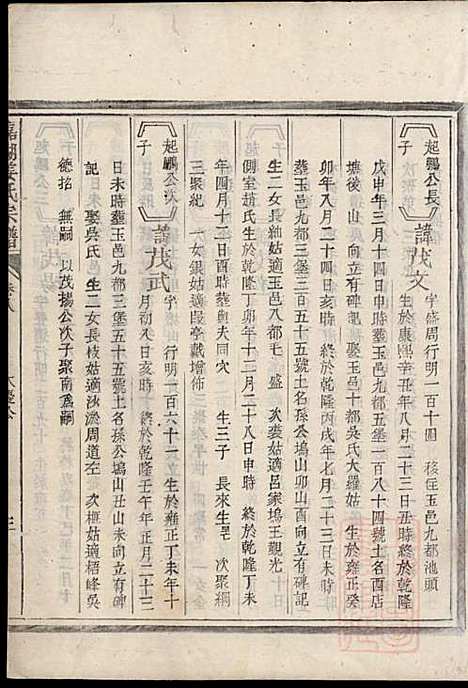 起鵬公長子
諱茂文
字盛周行明一百十圓 移住玉邑九都池頭
生於康熙辛丑年八月二十三日丑時終於乾隆
戊申年三月十四日未時葬玉邑九都五堡一百八十四號土名西
塘後山 向立有碑記 娶玉邑十都吳氏大羅姑 生於雍正癸
卯年八月二十四日寅時 終於乾隆丙戌年七月二十三日未時
葬玉邑九都三堡五十五號土名孫公塢山卯山酉向立有碑記
生二女長紬姑適玉邑八都毛 盛 次裘姑適呂家塢王觀光
側室趙氏生於乾隆丁卯年十二月二十八日申時 終於乾隆丁未
年四月十二日酉時葬與夫同穴 生三子 長來生 次聚綱
三聚紀 一女銀姑適殿亭戴增佈
起鵬公次子
諱茂武
字 行明一百六十一 生於雍正丁未年十
月初八日亥時 終於乾隆壬午年正月二十三
日未時葬玉邑九都三堡五十五號土名孫公塢山丑山未向立有碑
記 娶吳氏 生二女長枝姑適沙淤周道在 次榧姑適梧峰吳
德招 無嗣 以茂揚公次子聚南爲嗣